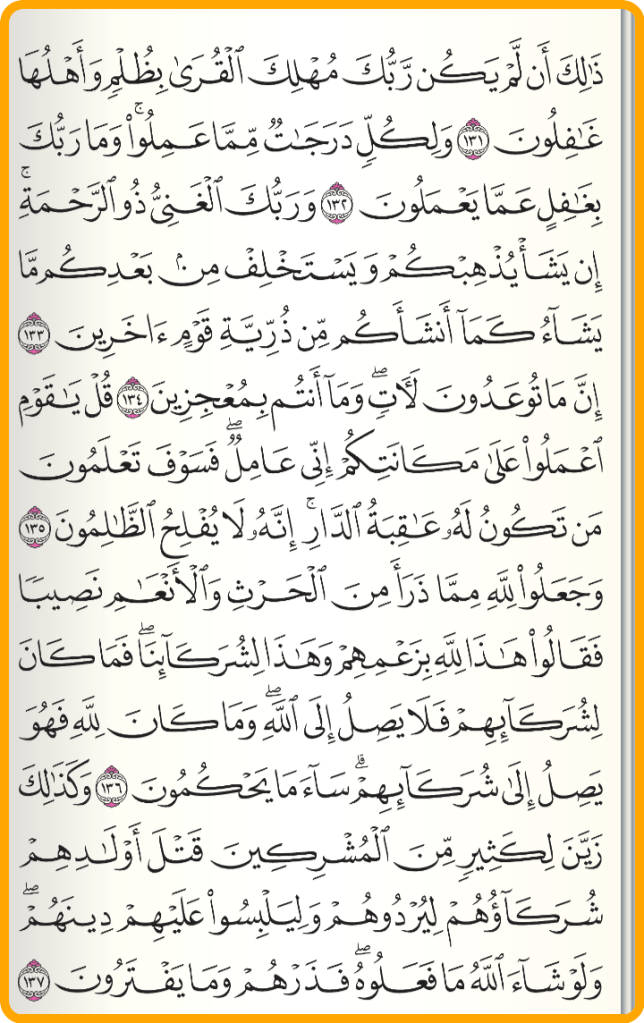 ذَٰلِكَ أَن لَّمۡ يَكُن رَّبُّكَ مُهۡلِكَ ٱلۡقُرَىٰ بِظُلۡمٖ وَأَهۡلُهَا
غَٰفِلُونَ ١٣١ وَلِكُلّٖ دَرَجَٰتٞ مِّمَّا عَمِلُواْۚ وَمَا رَبُّكَ
بِغَٰفِلٍ عَمَّا يَعۡمَلُونَ ١٣٢ وَرَبُّكَ ٱلۡغَنِيُّ ذُو ٱلرَّحۡمَةِۚ
إِن يَشَأۡ يُذۡهِبۡكُمۡ وَيَسۡتَخۡلِفۡ مِنۢ بَعۡدِكُم مَّا
يَشَآءُ كَمَآ أَنشَأَكُم مِّن ذُرِّيَّةِ قَوۡمٍ ءَاخَرِينَ ١٣٣
إِنَّ مَا تُوعَدُونَ لَأٓتٖۖ وَمَآ أَنتُم بِمُعۡجِزِينَ ١٣٤ قُلۡ يَٰقَوۡمِ
ٱعۡمَلُواْ عَلَىٰ مَكَانَتِكُمۡ إِنِّي عَامِلٞۖ فَسَوۡفَ تَعۡلَمُونَ
مَن تَكُونُ لَهُۥ عَٰقِبَةُ ٱلدَّارِۚ إِنَّهُۥ لَا يُفۡلِحُ ٱلظَّٰلِمُونَ ١٣٥
وَجَعَلُواْ لِلَّهِ مِمَّا ذَرَأَ مِنَ ٱلۡحَرۡثِ وَٱلۡأَنۡعَٰمِ نَصِيبٗا
فَقَالُواْ هَٰذَا لِلَّهِ بِزَعۡمِهِمۡ وَهَٰذَا لِشُرَكَآئِنَاۖ فَمَا كَانَ
لِشُرَكَآئِهِمۡ فَلَا يَصِلُ إِلَى ٱللَّهِۖ وَمَا كَانَ لِلَّهِ فَهُوَ
يَصِلُ إِلَىٰ شُرَكَآئِهِمۡۗ سَآءَ مَا يَحۡكُمُونَ ١٣٦ وَكَذَٰلِكَ
زَيَّنَ لِكَثِيرٖ مِّنَ ٱلۡمُشۡرِكِينَ قَتۡلَ أَوۡلَٰدِهِمۡ
شُرَكَآؤُهُمۡ لِيُرۡدُوهُمۡ وَلِيَلۡبِسُواْ عَلَيۡهِمۡ دِينَهُمۡۖ
وَلَوۡ شَآءَ ٱللَّهُ مَا فَعَلُوهُۖ فَذَرۡهُمۡ وَمَا يَفۡتَرُونَ ١٣٧